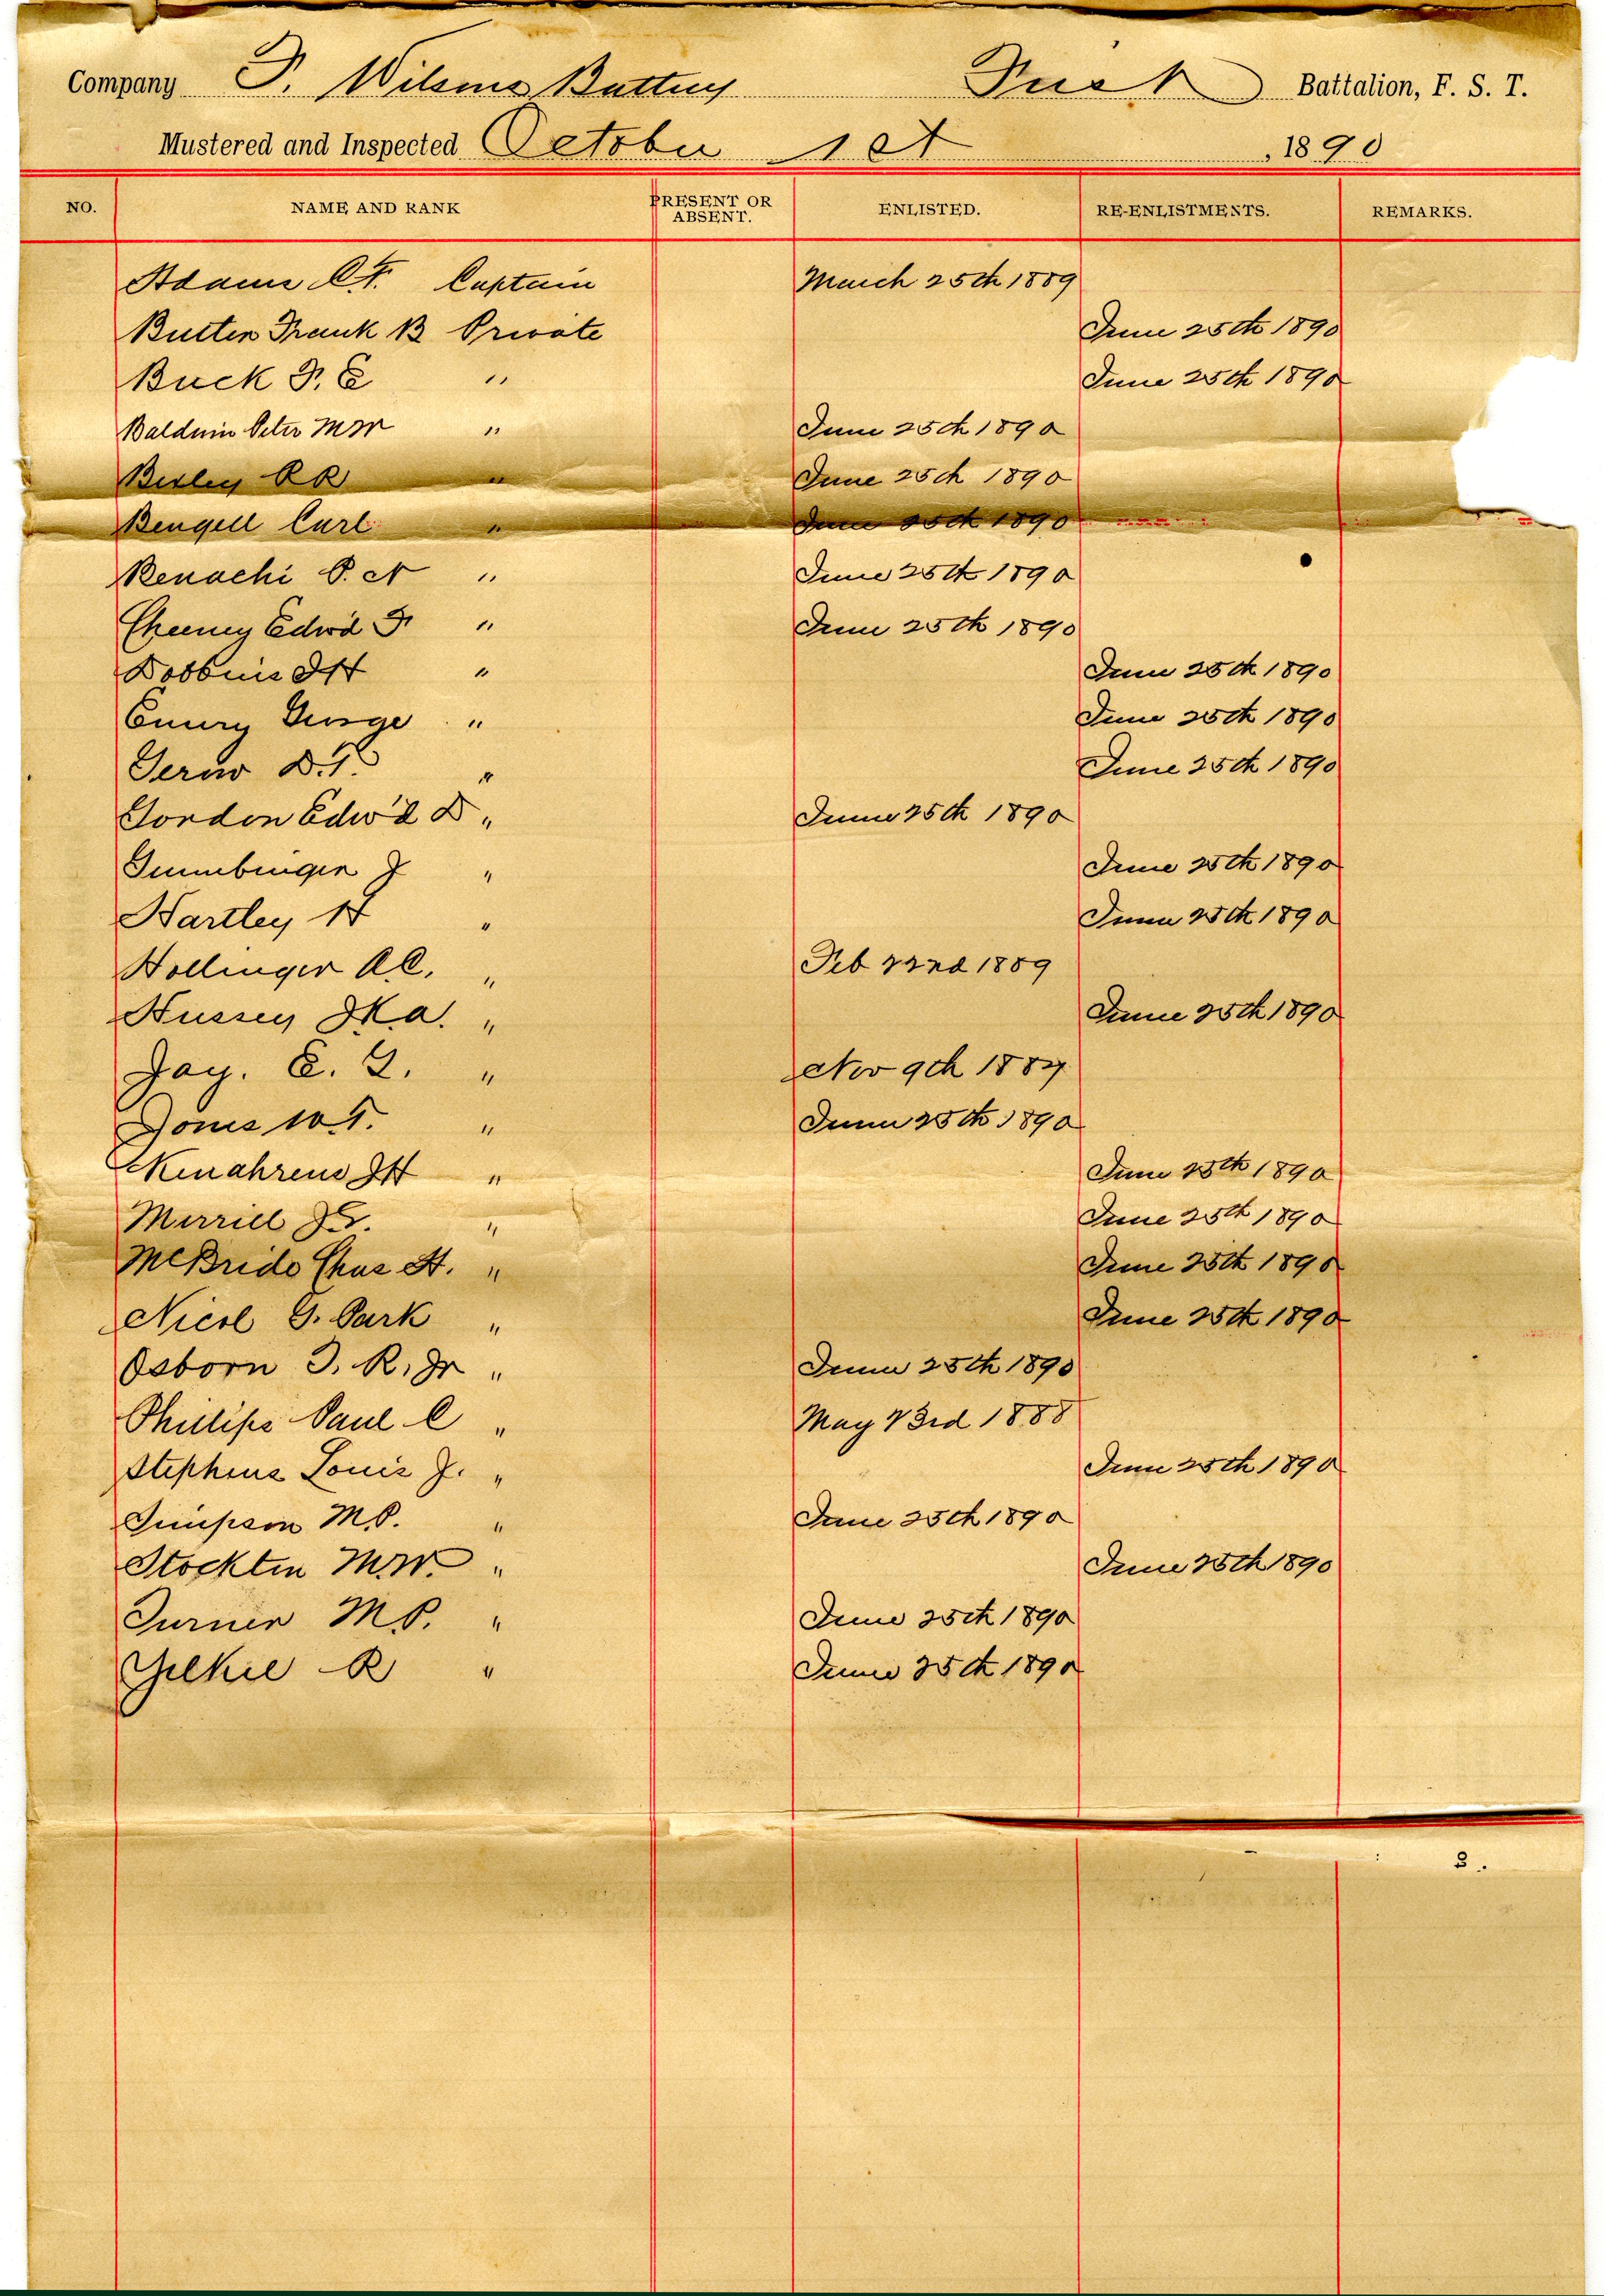 Company F. Wilsons Battery First Battalion, F. S. T.
Mustered and Inspected October 1st, 1890
NO. NAME AND RANK PRESENT OR ABSENT. ENLISTED. RE-ENLISTMENTS. REMARKS.
Adams C.F. Captain March 25th 1889
Butler Frank B Private June 25th 1890
Buck F. E " June 25th 1890
Baldwin Peter " June 25th 1890
Bexley RR " June 25th 1890
Bengell Carl " June 25th 1890
Benachi P. N " June 25th 1890
Cheeney Edwd F " June 25th 1890
Dobbins JH " June 25th 1890
Emery George " June 25th 1890
D.T. " June 25th 1890
Gordon Edw'd D " June 25th 1890
J " June 25th 1890
Hartley H " June 25th 1890
Hollinger A.C. " Feb 22nd 1889
Hussey " June 25th 1890
Jay. E. G. " Nov 9th 1887
Jones W.T. " June 25th 1890
JH " June 25th 1890
Merrill " June 25th 1890
McBride Chas H. " June 25th 1890
Nicol G. Park " June 25th 1890
Osborn J. R. Jr " June 25th 1890
Phillips Paul C " May 23rd 1888
Stephens Louis J. " June 25th 1890
Simpson M.P. " June 25th 1890
Stockton M.W. " June 25th 1890
Turner M.P. " June 25th 1890
Yelkie R " June 25th 1890